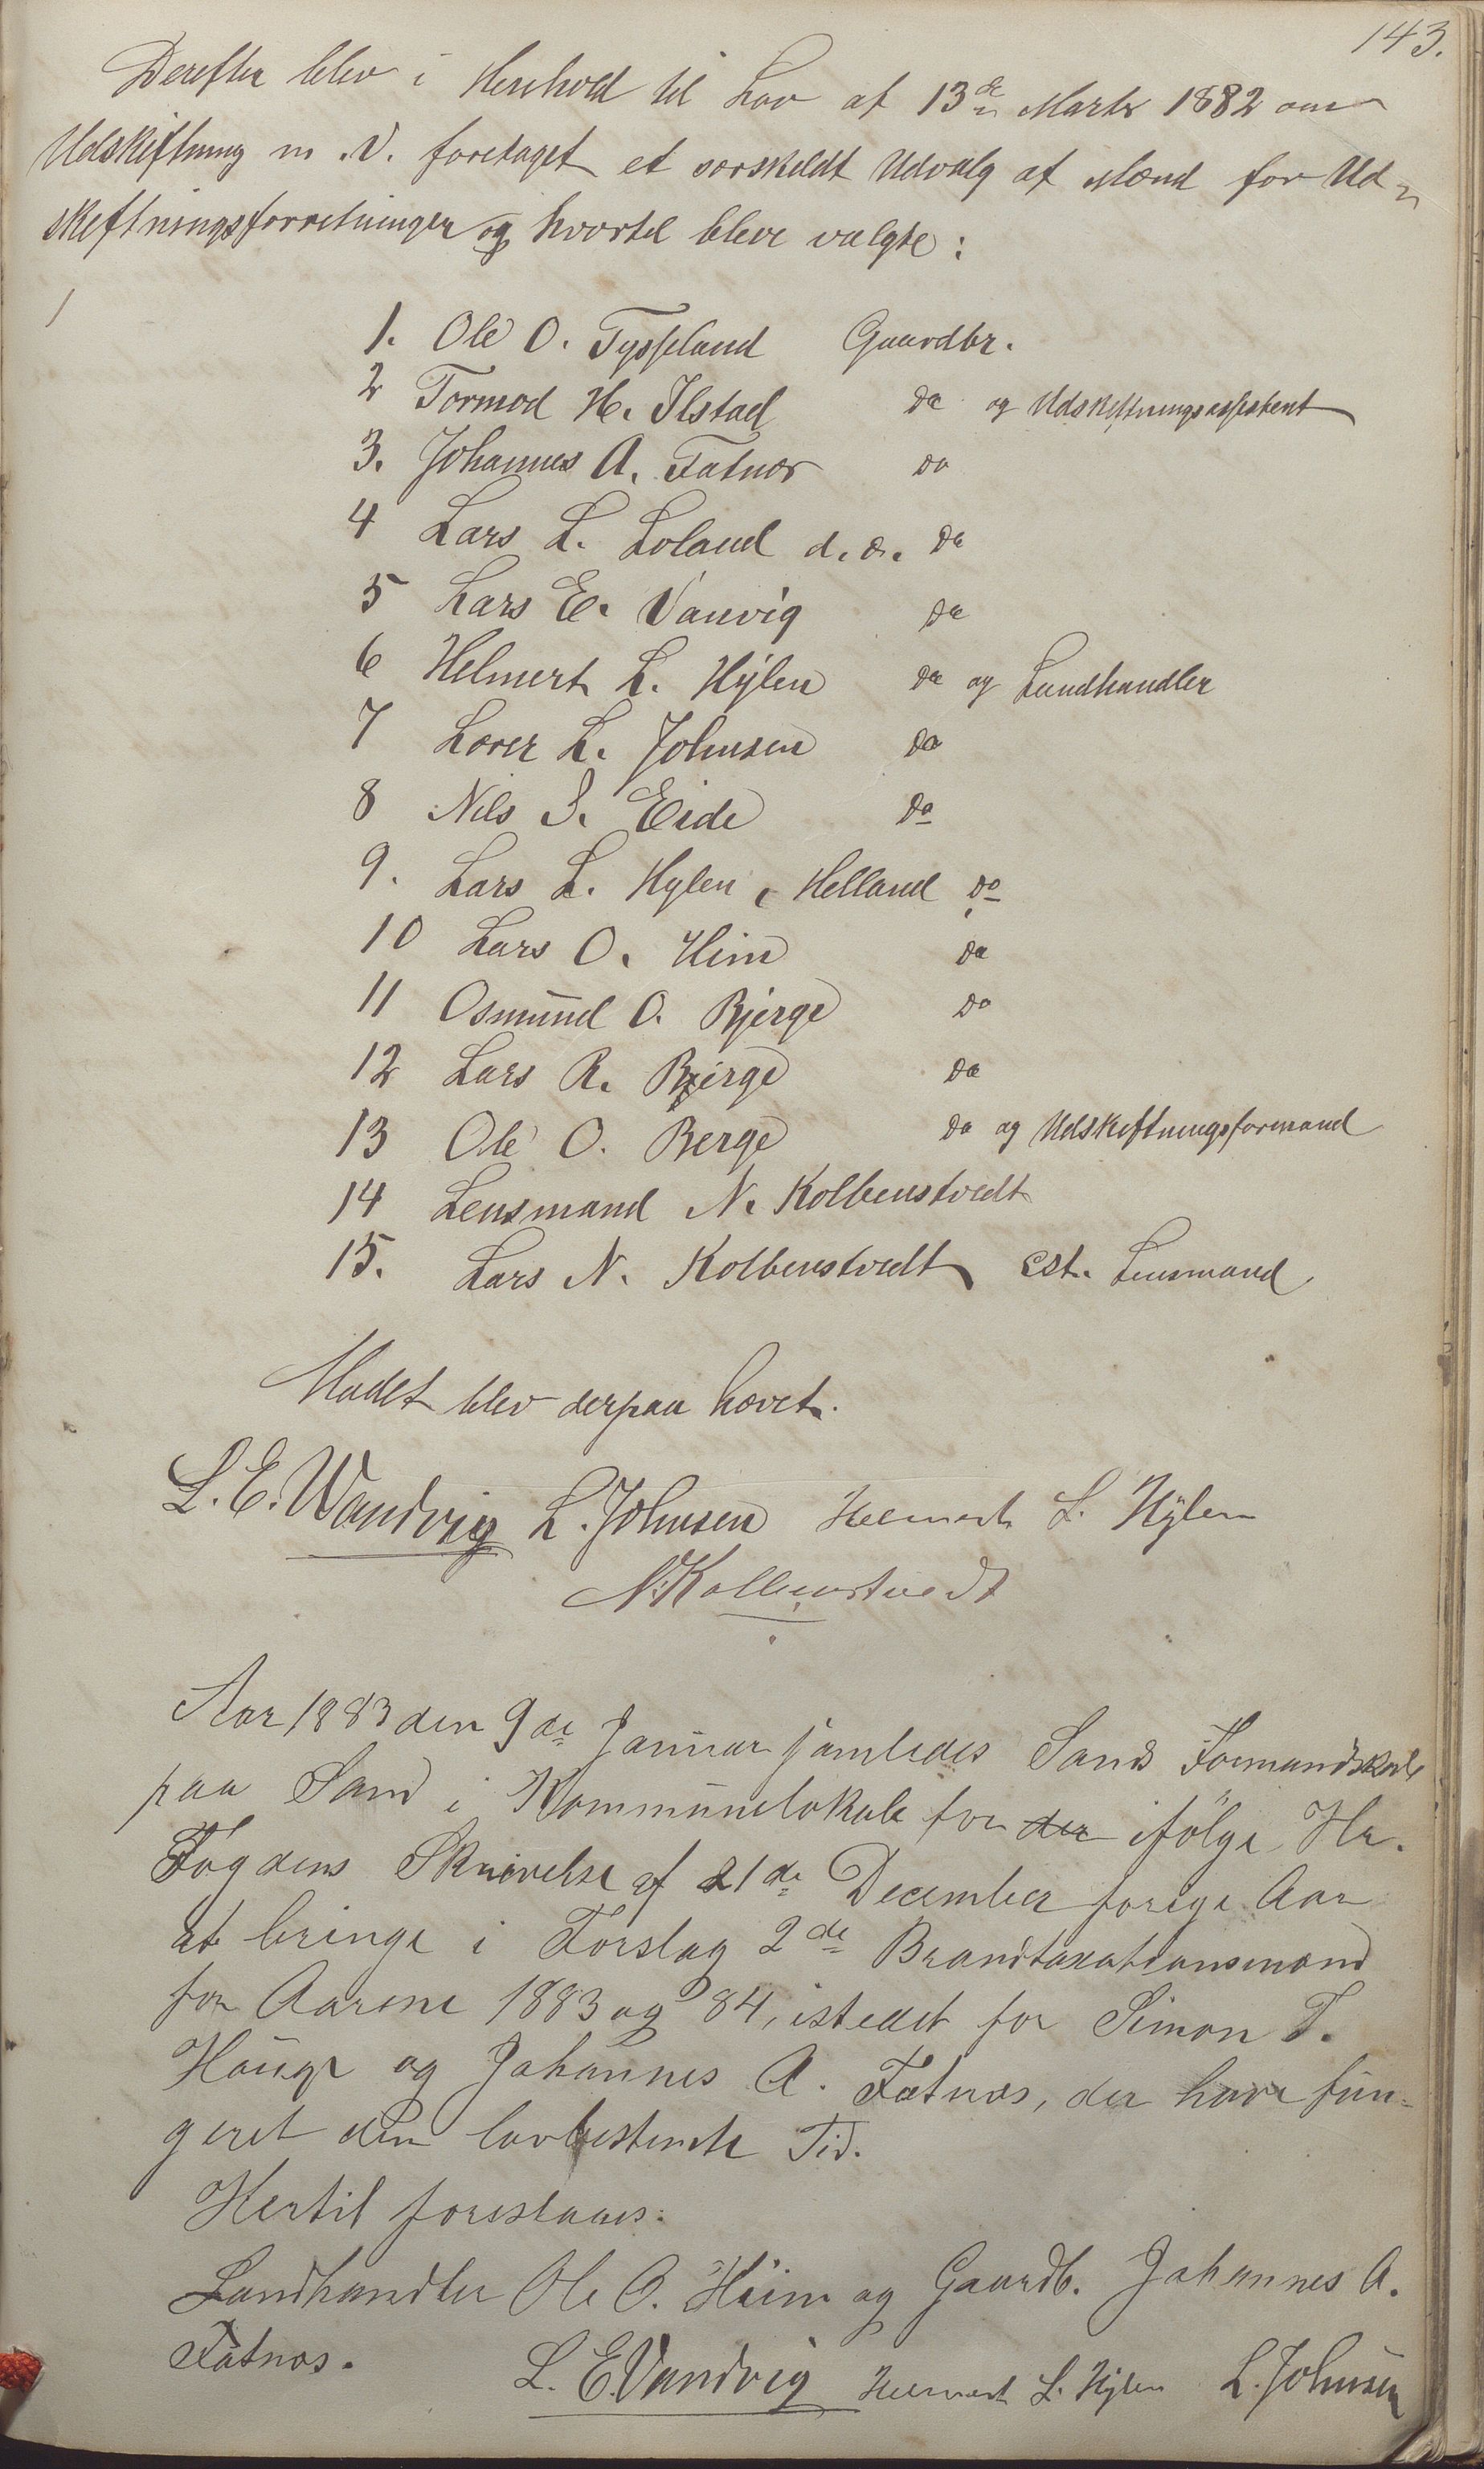 143.
Derefter blev i Henhold til Lov af 13de Marts 1882 om
Udskiftning m. V. foretaget et særskildt Udvalg af Mænd for Ud=
skiftningsforretninger og hvortil bleve valgte:
1. Ole O. Tysseland Gaardbr.
2 Tormod H. Ilstad do og Udskiftningsassistent
3. Johannes A. Fatnæs do
4 Lars L. Løland d. æ. do
5 Lars E. Vanvig do
6 Helmert L. Hÿlen do og Landhandler
7 Lærer L. Johnsen do
8 Nils S. Eide do
9. Lars L. Hylen, Helland do
10 Lars O. Hiim do
11 Osmund O. Bjerge do
12 Lars R. Berge do
13 Ole O. Berge do og Udskiftningsformand
14 Lensmand N. Kolbenstvedt
15. Lars N. Kolbenstvedt cst. Lensmand
Mødet blev derpaa hævet.
L. E. Wandvig L. Johnsen Helmert L. Hÿlen
N. Kolbenstvedt
Aar 1883 den 9de Januar samledes Sands Formandskab
paa Sand i Kommunelokale for der ifölge Hr.
Fogdens Skrivelse af 21de December forrige Aar
at bringe i Forslag 2de Brandtaxationsmænd
for Aarene 1883 og 84, istedet for Simon T.
Hauge og Johannes A. Fatnæs, der have fun=
geret den lovbestemte Tid.
Hertil foreslaaes:
Landhandler Ole O. Hiim og Gaardb. Johannes A.
Fatnæs.
L. E. Vandvig Helmert L. Hÿlen L. Johnsen